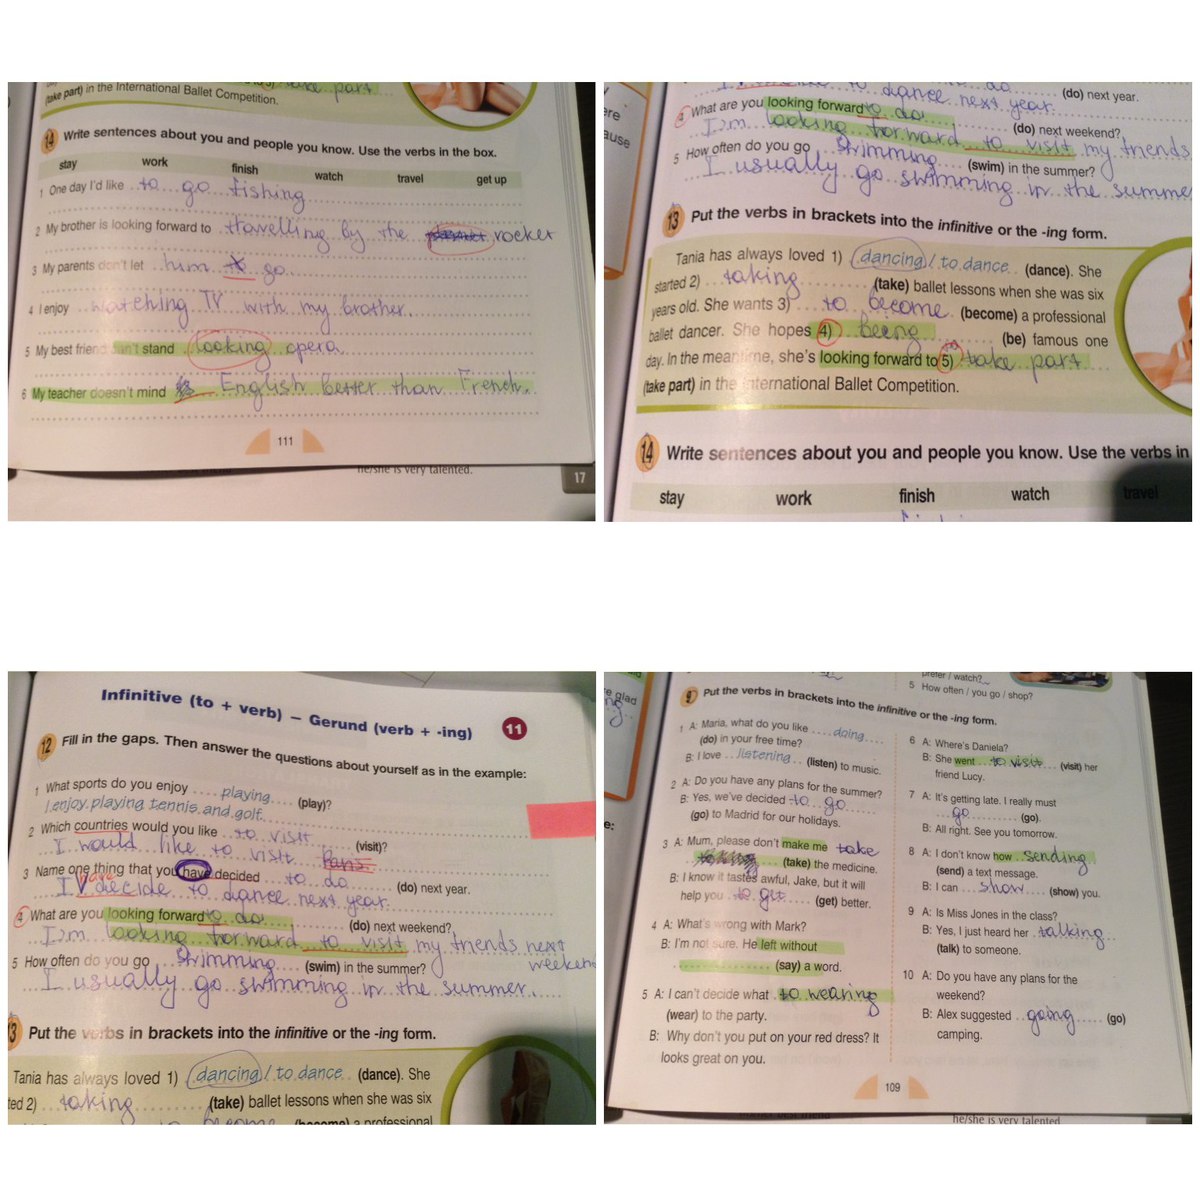 (take part) in the International Ballet Competition.
take part
14 Write sentences about you and people you know. Use the verbs in the box.
stay work finish watch travel get up
1 One day I'd like to go fishing
2 My brother is looking forward to travelling by the rocket
3 My parents don't let him to go
4 I enjoy watching TV with my brother.
5 My best friend can't stand looking opera
6 My teacher doesn't mind English better than French.
111
he/she is very talented.
17
to dance next year. (do) next year.
4 What are you looking forward to do (do) next weekend?
I'm looking forward to visit my friends
5 How often do you go swimming (swim) in the summer?
I usually go swimming in the summer
13 Put the verbs in brackets into the infinitive or the -ing form.
Tania has always loved 1) dancing / to dance (dance). She
started 2) taking (take) ballet lessons when she was six
years old. She wants 3) to become (become) a professional
ballet dancer. She hopes 4) being (be) famous one
day. In the meantime, she's looking forward to 5) to take part
(take part) in the International Ballet Competition.
14 Write sentences about you and people you know. Use the verbs in
stay work finish watch travel
Infinitive (to + verb) – Gerund (verb + -ing) 11
12 Fill in the gaps. Then answer the questions about yourself as in the example:
1 What sports do you enjoy playing (play)?
I enjoy playing tennis and golf.
2 Which countries would you like to visit (visit)?
I would like to visit Paris
3 Name one thing that you have decided to do (do) next year.
I have decide to dance next year.
4 What are you looking forward to do (do) next weekend?
I'm looking forward to visit my friends next weekend
5 How often do you go swimming (swim) in the summer?
I usually go swimming in the summer.
13 Put the verbs in brackets into the infinitive or the -ing form.
Tania has always loved 1) dancing / to dance (dance). She
ted 2) taking (take) ballet lessons when she was six
to become (become) a professional
prefer / watch?
5 How often / you go / shop?
9 Put the verbs in brackets into the infinitive or the -ing form.
1 A: Maria, what do you like doing
(do) in your free time?
B: I love listening (listen) to music.
2 A: Do you have any plans for the summer?
B: Yes, we've decided to go
(go) to Madrid for our holidays.
3 A: Mum, please don't make me take
(take) the medicine.
B: I know it tastes awful, Jake, but it will
help you to get (get) better.
4 A: What's wrong with Mark?
B: I'm not sure. He left without
(say) a word.
5 A: I can't decide what to wearing
(wear) to the party.
B: Why don't you put on your red dress? It
looks great on you.
6 A: Where's Daniela?
B: She went to visit (visit) her
friend Lucy.
7 A: It's getting late. I really must
go (go).
B: All right. See you tomorrow.
8 A: I don't know how sending
(send) a text message.
B: I can show (show) you.
9 A: Is Miss Jones in the class?
B: Yes, I just heard her talking
(talk) to someone.
10 A: Do you have any plans for the
weekend?
B: Alex suggested going (go)
camping.
109
he/she is very talented